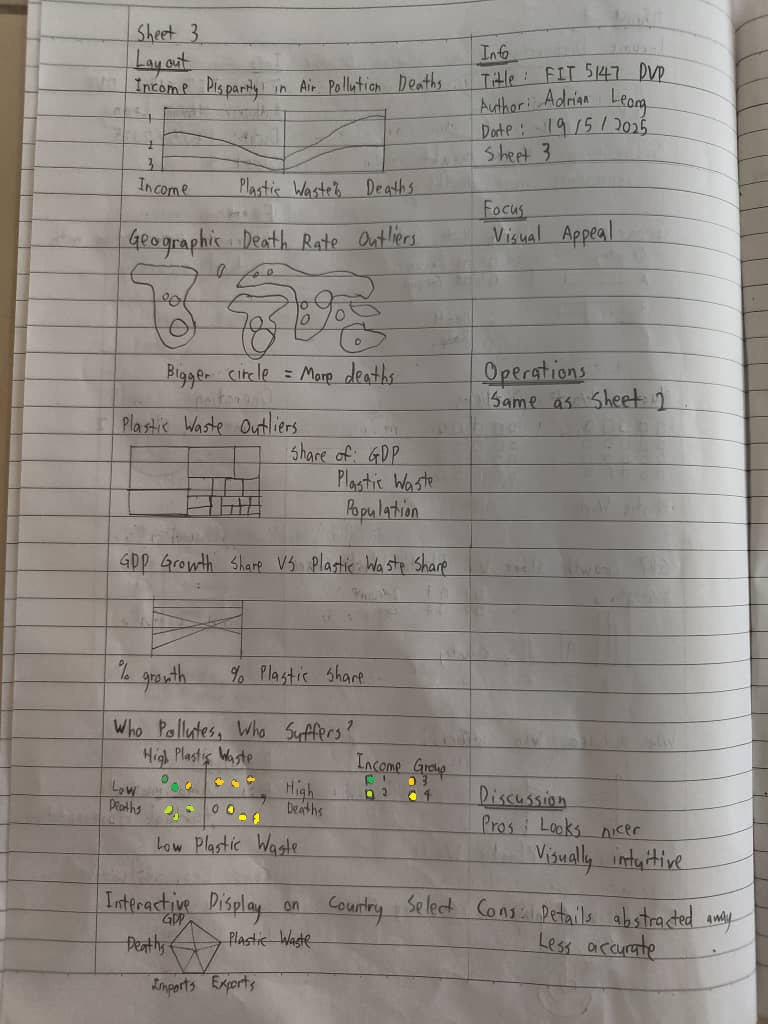 Sheet 3
Layout
Income Disparity in Air Pollution Deaths
1
2
3
Income Plastic Waste% Deaths
Geographic Death Rate Outliers
Bigger circle = More deaths
Plastic Waste Outliers
Share of: GDP
Plastic Waste
Population
GDP Growth Share VS Plastic Waste Share
% growth % Plastic share
Who Pollutes, Who Suffers?
High Plastic Waste
Low Deaths
High Deaths
Low Plastic Waste
Income Group
1 3
2 4
Interactive Display on Country Select
GDP
Deaths Plastic Waste
Imports Exports
Info
Title: FIT 5147 DVP
Author: Adrian Leong
Date: 19/5/2025
Sheet 3
Focus
Visual Appeal
Operations
Same as Sheet 2
Discussion
Pros: Looks nicer
Visually intuitive
Cons: Details abstracted away
Less accurate